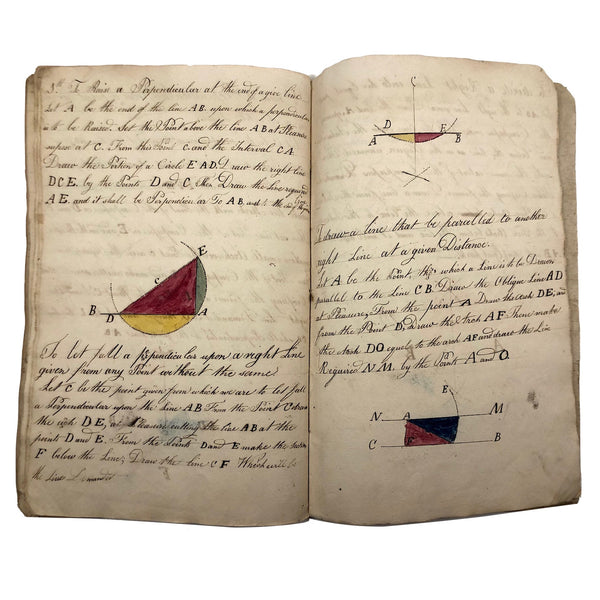 3.th To Raise a Perpendicular at the end of a give line
Let A be the end of the line AB upon which a perpendicular
is to be Raised. Set the Point above the line AB at Pleasure
suppose at C. From this Point C and the Interval CA
Draw the Portion of a Circle EAD. Draw the right line
DCE. by the Points D and C. then Draw the Line required
AE. and it shall be Perpendicular To AB. and
E
C
B
D
A
To let fall a perpendicular upon a right Line
given from any Point without the same
Let C be the point given from which we are to let fall
a Perpendicular upon the Line AB From the Point C draw
the arch DE, at Pleasure cutting the line AB at the
point D and E. From the Points D and E make the section
F below the Line; Draw the line CF Which will be
the Line Demanded
C
D
E
A
B
To draw a line that be parcelled to another
right Line at a given Distance.
Let A be the Point, which a Line is to be Drawn
parallel to the Line CB. Draw the Oblique Line AD
at Pleasure, From the point A Draw the arch DE, and
from the Point D, draw the Arch AF Then make
the Arch DO equel to the arch AF and drawe the Line
Required NM. by the Points A and O.
E
N
A
M
C
F
B